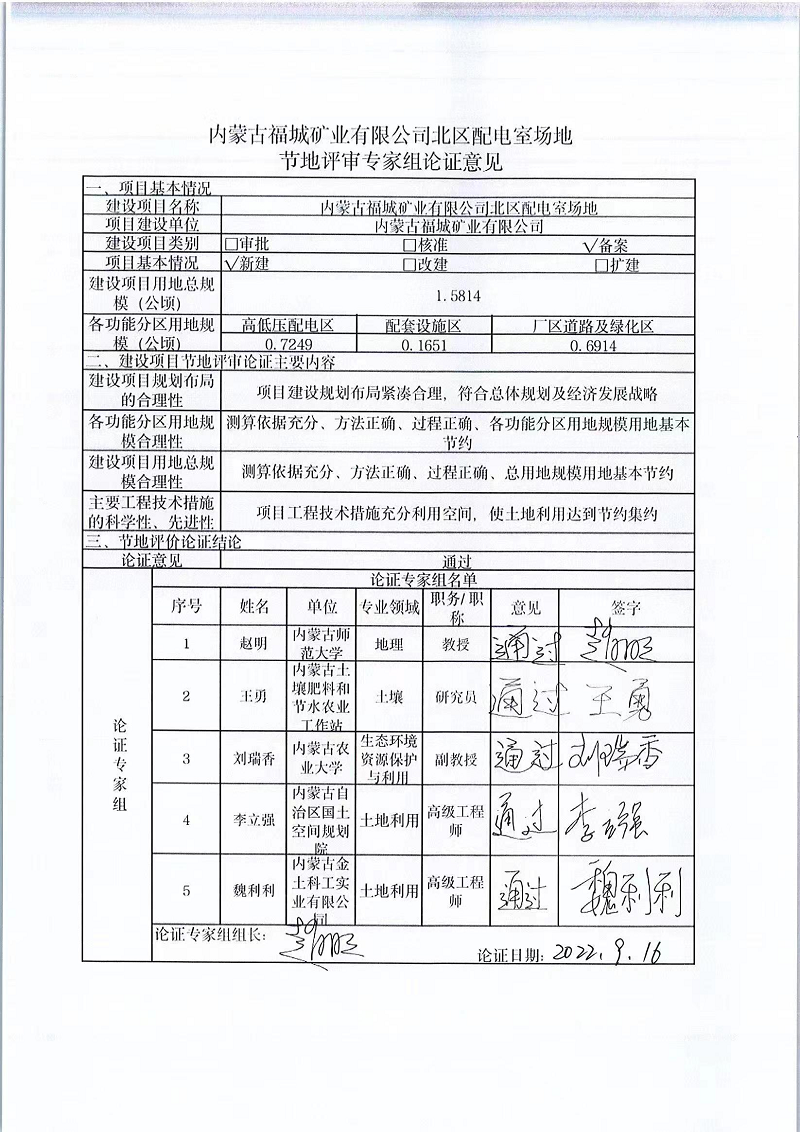 内蒙古福城矿业有限公司北区配电室场地
节地评审专家组论证意见
一、项目基本情况
建设项目名称 内蒙古福城矿业有限公司北区配电室场地
项目建设单位 内蒙古福城矿业有限公司
建设项目类别 □审批 □核准 √备案
项目基本情况 √新建 □改建 □扩建
建设项目用地总规
模（公顷） 1.5814
各功能分区用地规
模（公顷） 高低压配电区 配套设施区 厂区道路及绿化区
0.7249 0.1651 0.6914
二、建设项目节地评审论证主要内容
建设项目规划布局
的合理性 项目建设规划布局紧凑合理，符合总体规划及经济发展战略
各功能分区用地规
模合理性 测算依据充分、方法正确、过程正确、各功能分区用地规模用地基本
节约
建设项目用地总规
模合理性 测算依据充分、方法正确、过程正确、总用地规模用地基本节约
主要工程技术措施
的科学性、先进性 项目工程技术措施充分利用空间，使土地利用达到节约集约
三、节地评价论证结论
论证意见 通过
论证专家组
论证专家组名单
序号 姓名 单位 专业领域 职务/职
称 意见 签字
1 赵明 内蒙古师
范大学 地理 教授 通过 赵明
2 王勇 内蒙古土
壤肥料和
节水农业
工作站 土壤 研究员 通过 王勇
3 刘瑞香 内蒙古农
业大学 生态环境
资源保护
与利用 副教授 通过 刘瑞香
4 李立强 内蒙古自
治区国土
空间规划
院 土地利用 高级工程
师 通过 李立强
5 魏利利 内蒙古金
土科工实
业有限公
司 土地利用 高级工程
师 通过 魏利利
论证专家组组长：赵明
论证日期：2022.9.16